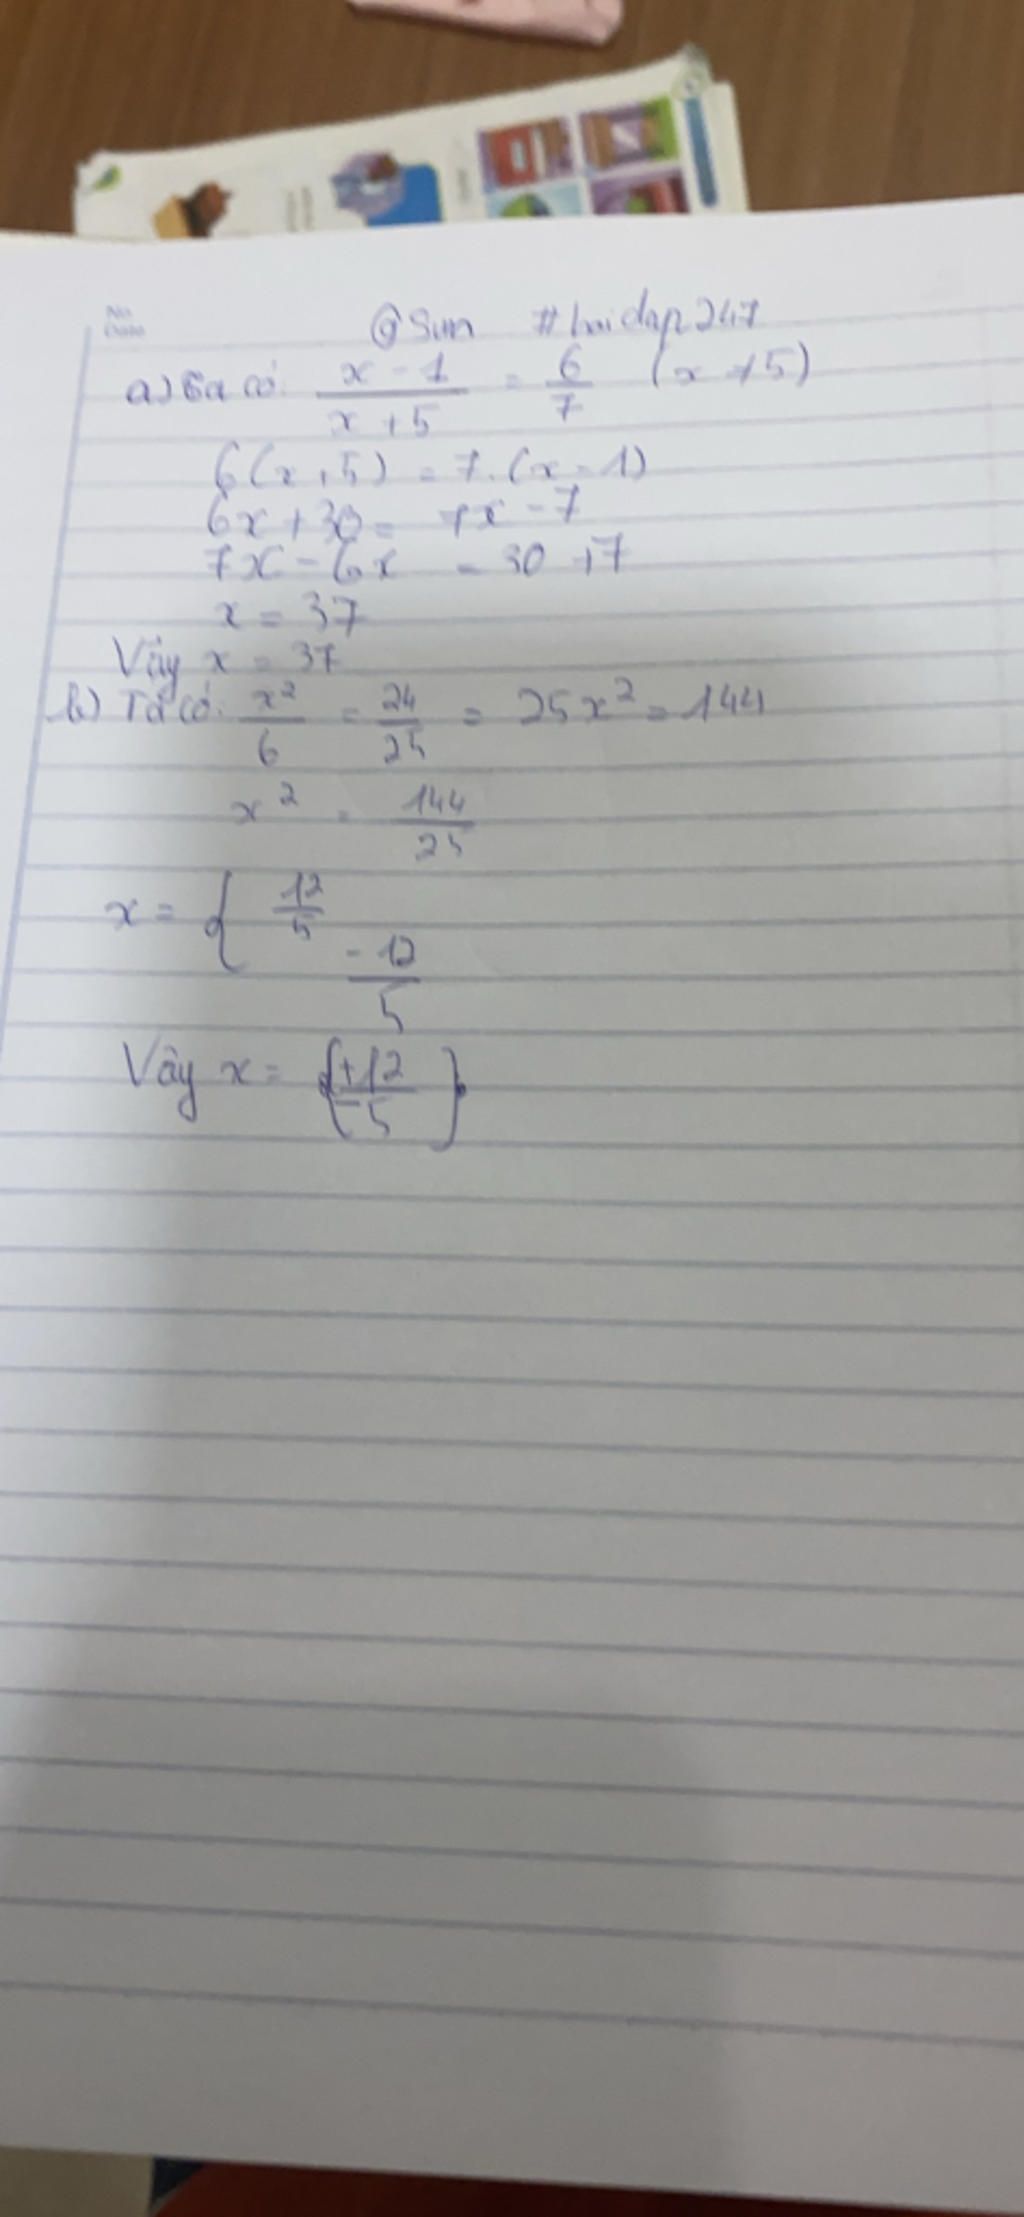 No.
Date
@Sun #hoidap247
a) Ta có: x - 1 / x + 5 = 6 / 7 (x ≠ 5)
6(x + 5) = 7.(x - 1)
6x + 30 = 7x - 7
7x - 6x = 30 + 7
x = 37
Vây x = 37
b) Ta có: x² / 6 = 24 / 25 = 25x² = 144
x² = 144 / 25
x = { 12 / 5
-12 / 5
Vây x = {± 12 / 5}